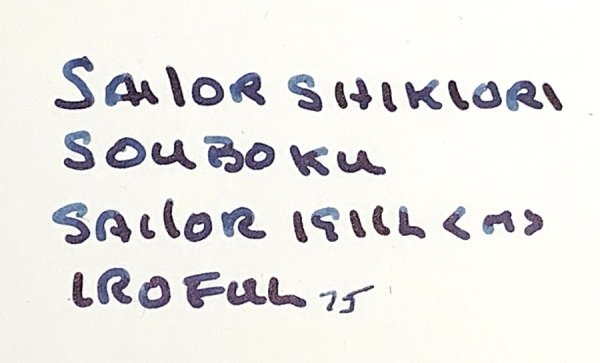 SAILOR SHIKIORI
SOUBOKU
SAILOR 1911L <M>
IROFUL 75